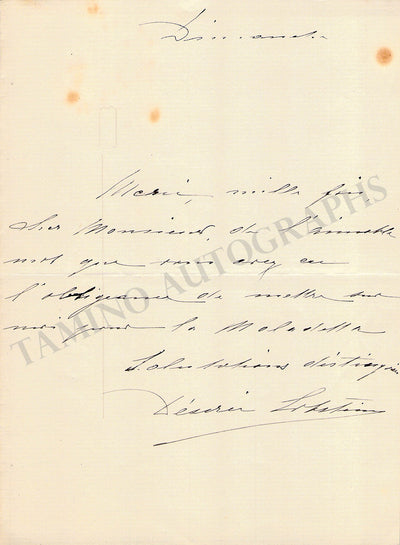 Dimanche
Merci, mille fois,
cher Monsieur, de l'aimable
mot que vous avez eu
l'obligeance de mettre sur
moi pour la Maladetta
Salutations distinguées
Désirée Lobstein
TAMINO AUTOGRAPHS